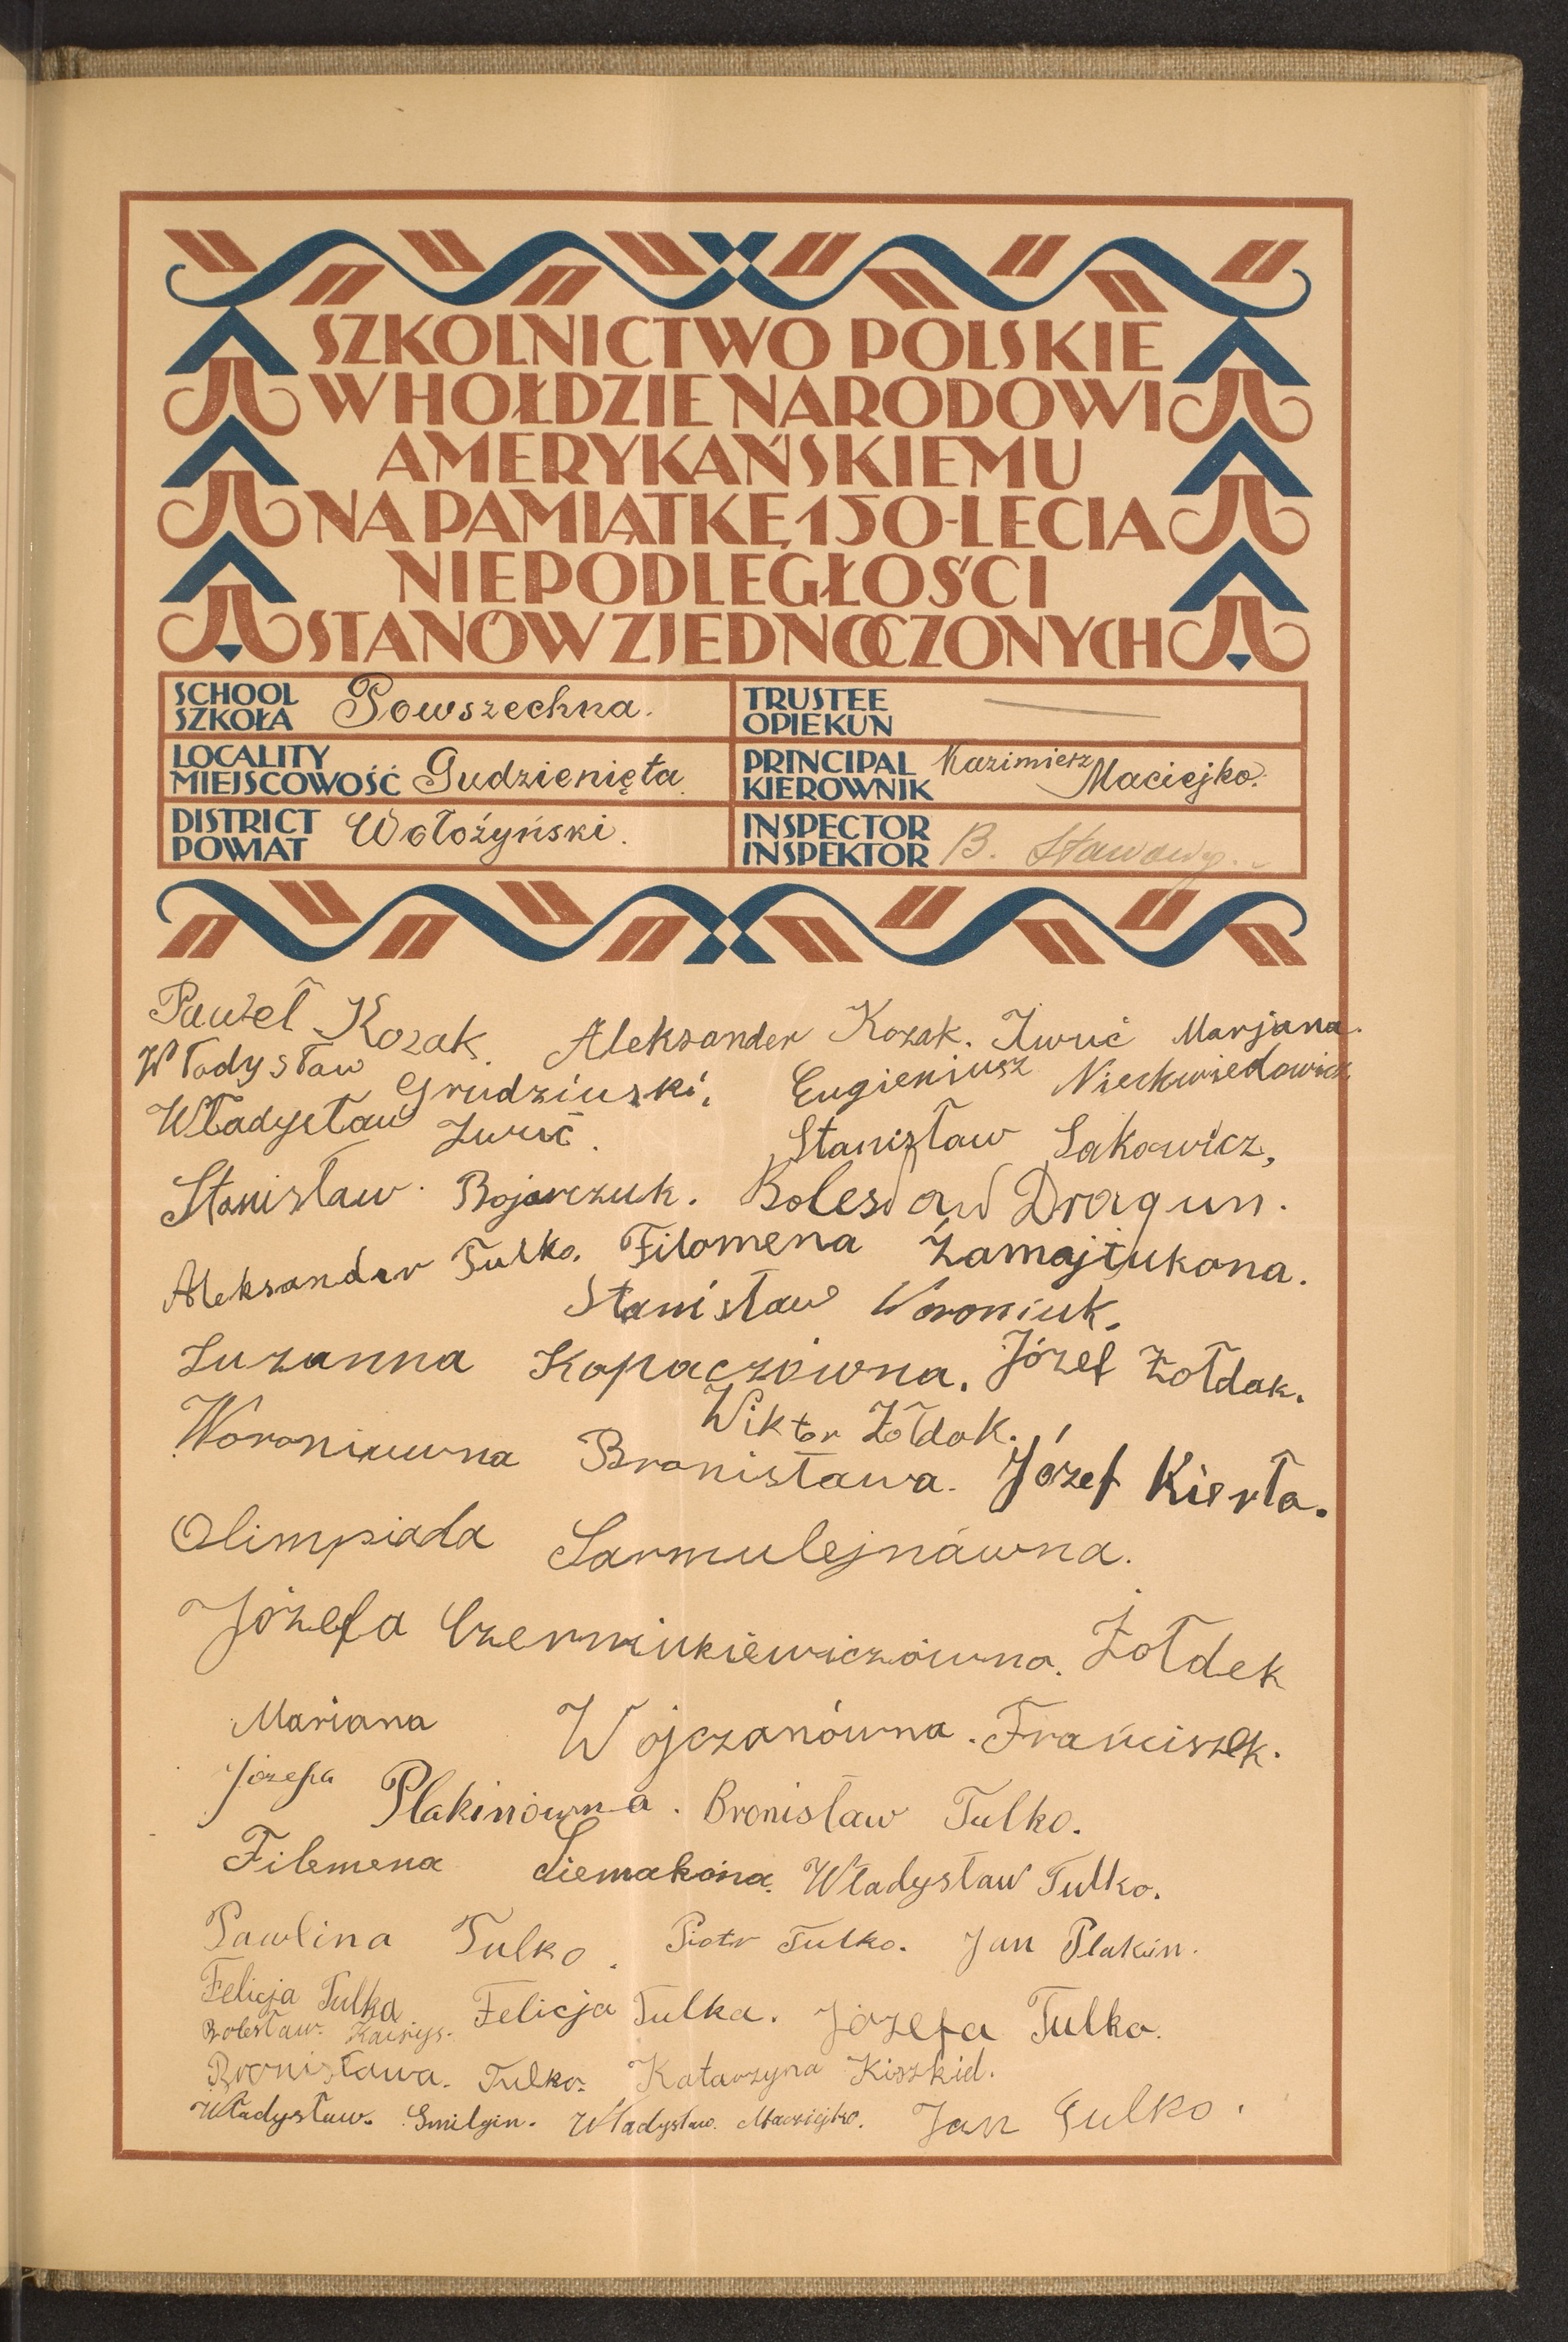 SZKOLNICTWO POLSKIE
W HOŁDZIE NARODOWI
AMERYKAŃSKIEMU
NA PAMIĄTKĘ 150-LECIA
NIEPODLEGŁOŚCI
STANÓW ZJEDNOCZONYCH
SCHOOL
SZKOŁA Powszechna.
TRUSTEE
OPIEKUN
LOCALITY
MIEJSCOWOŚĆ Gudzienięta.
PRINCIPAL
KIEROWNIK Kazimierz Maciejko.
DISTRICT
POWIAT Wołożyński.
INSPECTOR
INSPEKTOR B.
Paweł Kozak. Aleksander Kozak. Marjana.
Włodysław Grudziuski. Eugieniusz Nieckwiedowicz
Władysław Stanisław Sakowicz,
Stanisław Bojarczuk. Bolesław Dragun.
Aleksander Tulko. Filomena
Stanisław Woroniuk.
Zuzanna Kopaczówna. Józef Żołdak.
Wiktor Żołdak.
Bronisława. Józef Kierła.
Olimpiada Sarmulejnówna.
Józefa Żołdek
Mariana Wojczanówna. Franciszek.
Józefa Plakinówna. Bronisław Tulko.
Filemena Siemakona. Władysław Tulko.
Pawlina Tulko. Piotr Tulko. Jan Plakin.
Felicja Tulka Felicja Tulka. Józefa Tulko.
Bolesław. Kairys.
Bronisława. Tulko. Katarzyna Kiszkid.
Władysław. Smilgin. Władysław. Maciejko. Jan Tulko.